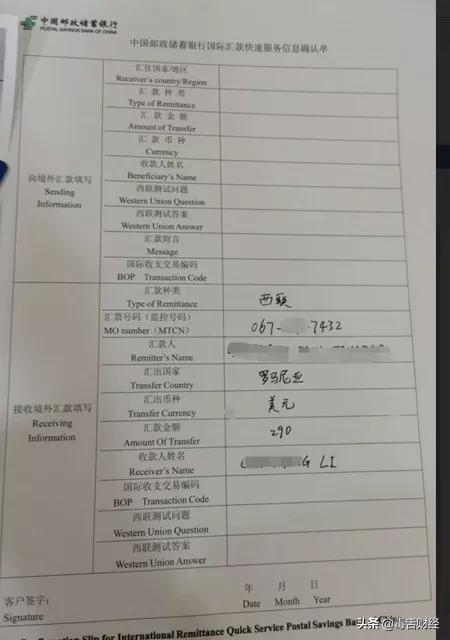 中国邮政储蓄银行
POSTAL SAVINGS BANK OF CHINA
中国邮政储蓄银行国际汇款快速服务信息确认单
向境外汇款填写
Sending
Information
汇往国家/地区
Receiver's country/Region
汇 款 种 类
Type of Remittance
汇 款 金 额
Amount of Transfer
汇 款 币 种
Currency
收款人姓名
Beneficiary's Name
西联测试问题
Western Union Question
西联测试答案
Western Union Answer
汇款附言
Message
国际收支交易编码
BOP Transaction Code
接收境外汇款填写
Receiving
Information
汇款种类
Type of Remittance
西联
汇票号码(监控号码)
MO number (MTCN)
067- -7432
汇款人
Remitter's Name
汇出国家
Transfer Country
罗马尼亚
汇出币种
Transfer Currency
美元
汇款金额
Amount Of Transfer
290
收款人姓名
Receiver's Name
G LI
国际收支交易编码
BOP Transaction Code
西联测试问题
Western Union Question
西联测试答案
Western Union Answer
客户签字:
Signature
年 月 日
Date Month Year
Slip for International Remittance Quick Service Postal Savings Ba
头条 @毒舌财经